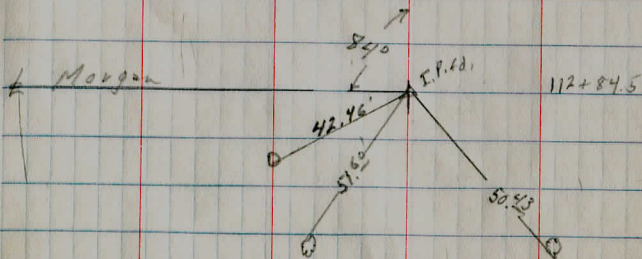 84°
Morgan
I.P.fd.
112+84.5
42.46'
51.61
50.43